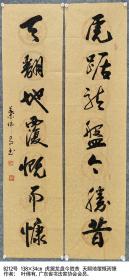 虎踞龍盤今勝昔
天翻地覆慨而慷
8212号 138×34cm 虎踞龙盘今胜昔 天翻地覆慨而慷
作者： 叶伟有, 广东省书法家协会会员。